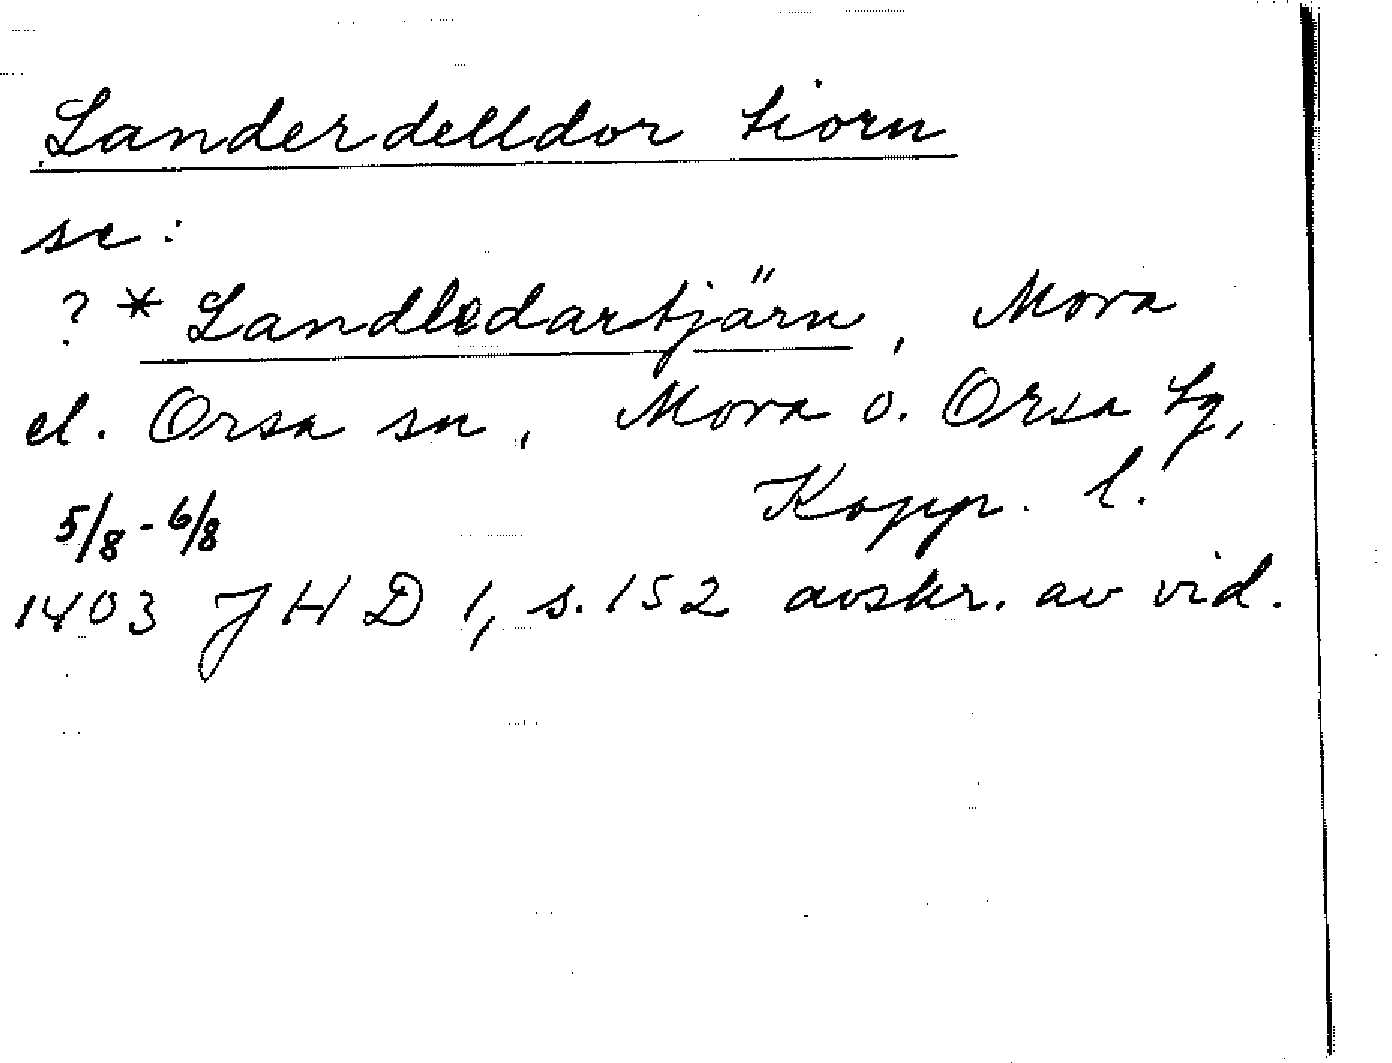 Landerdelldor tiorn
se:
? * Landledartjärn, Mora
el. Orsa sn, Mora o. Orsa tg,
Kopp. l.
5/8 - 6/8
1403 JHD 1, s. 152 avskr. av vid.